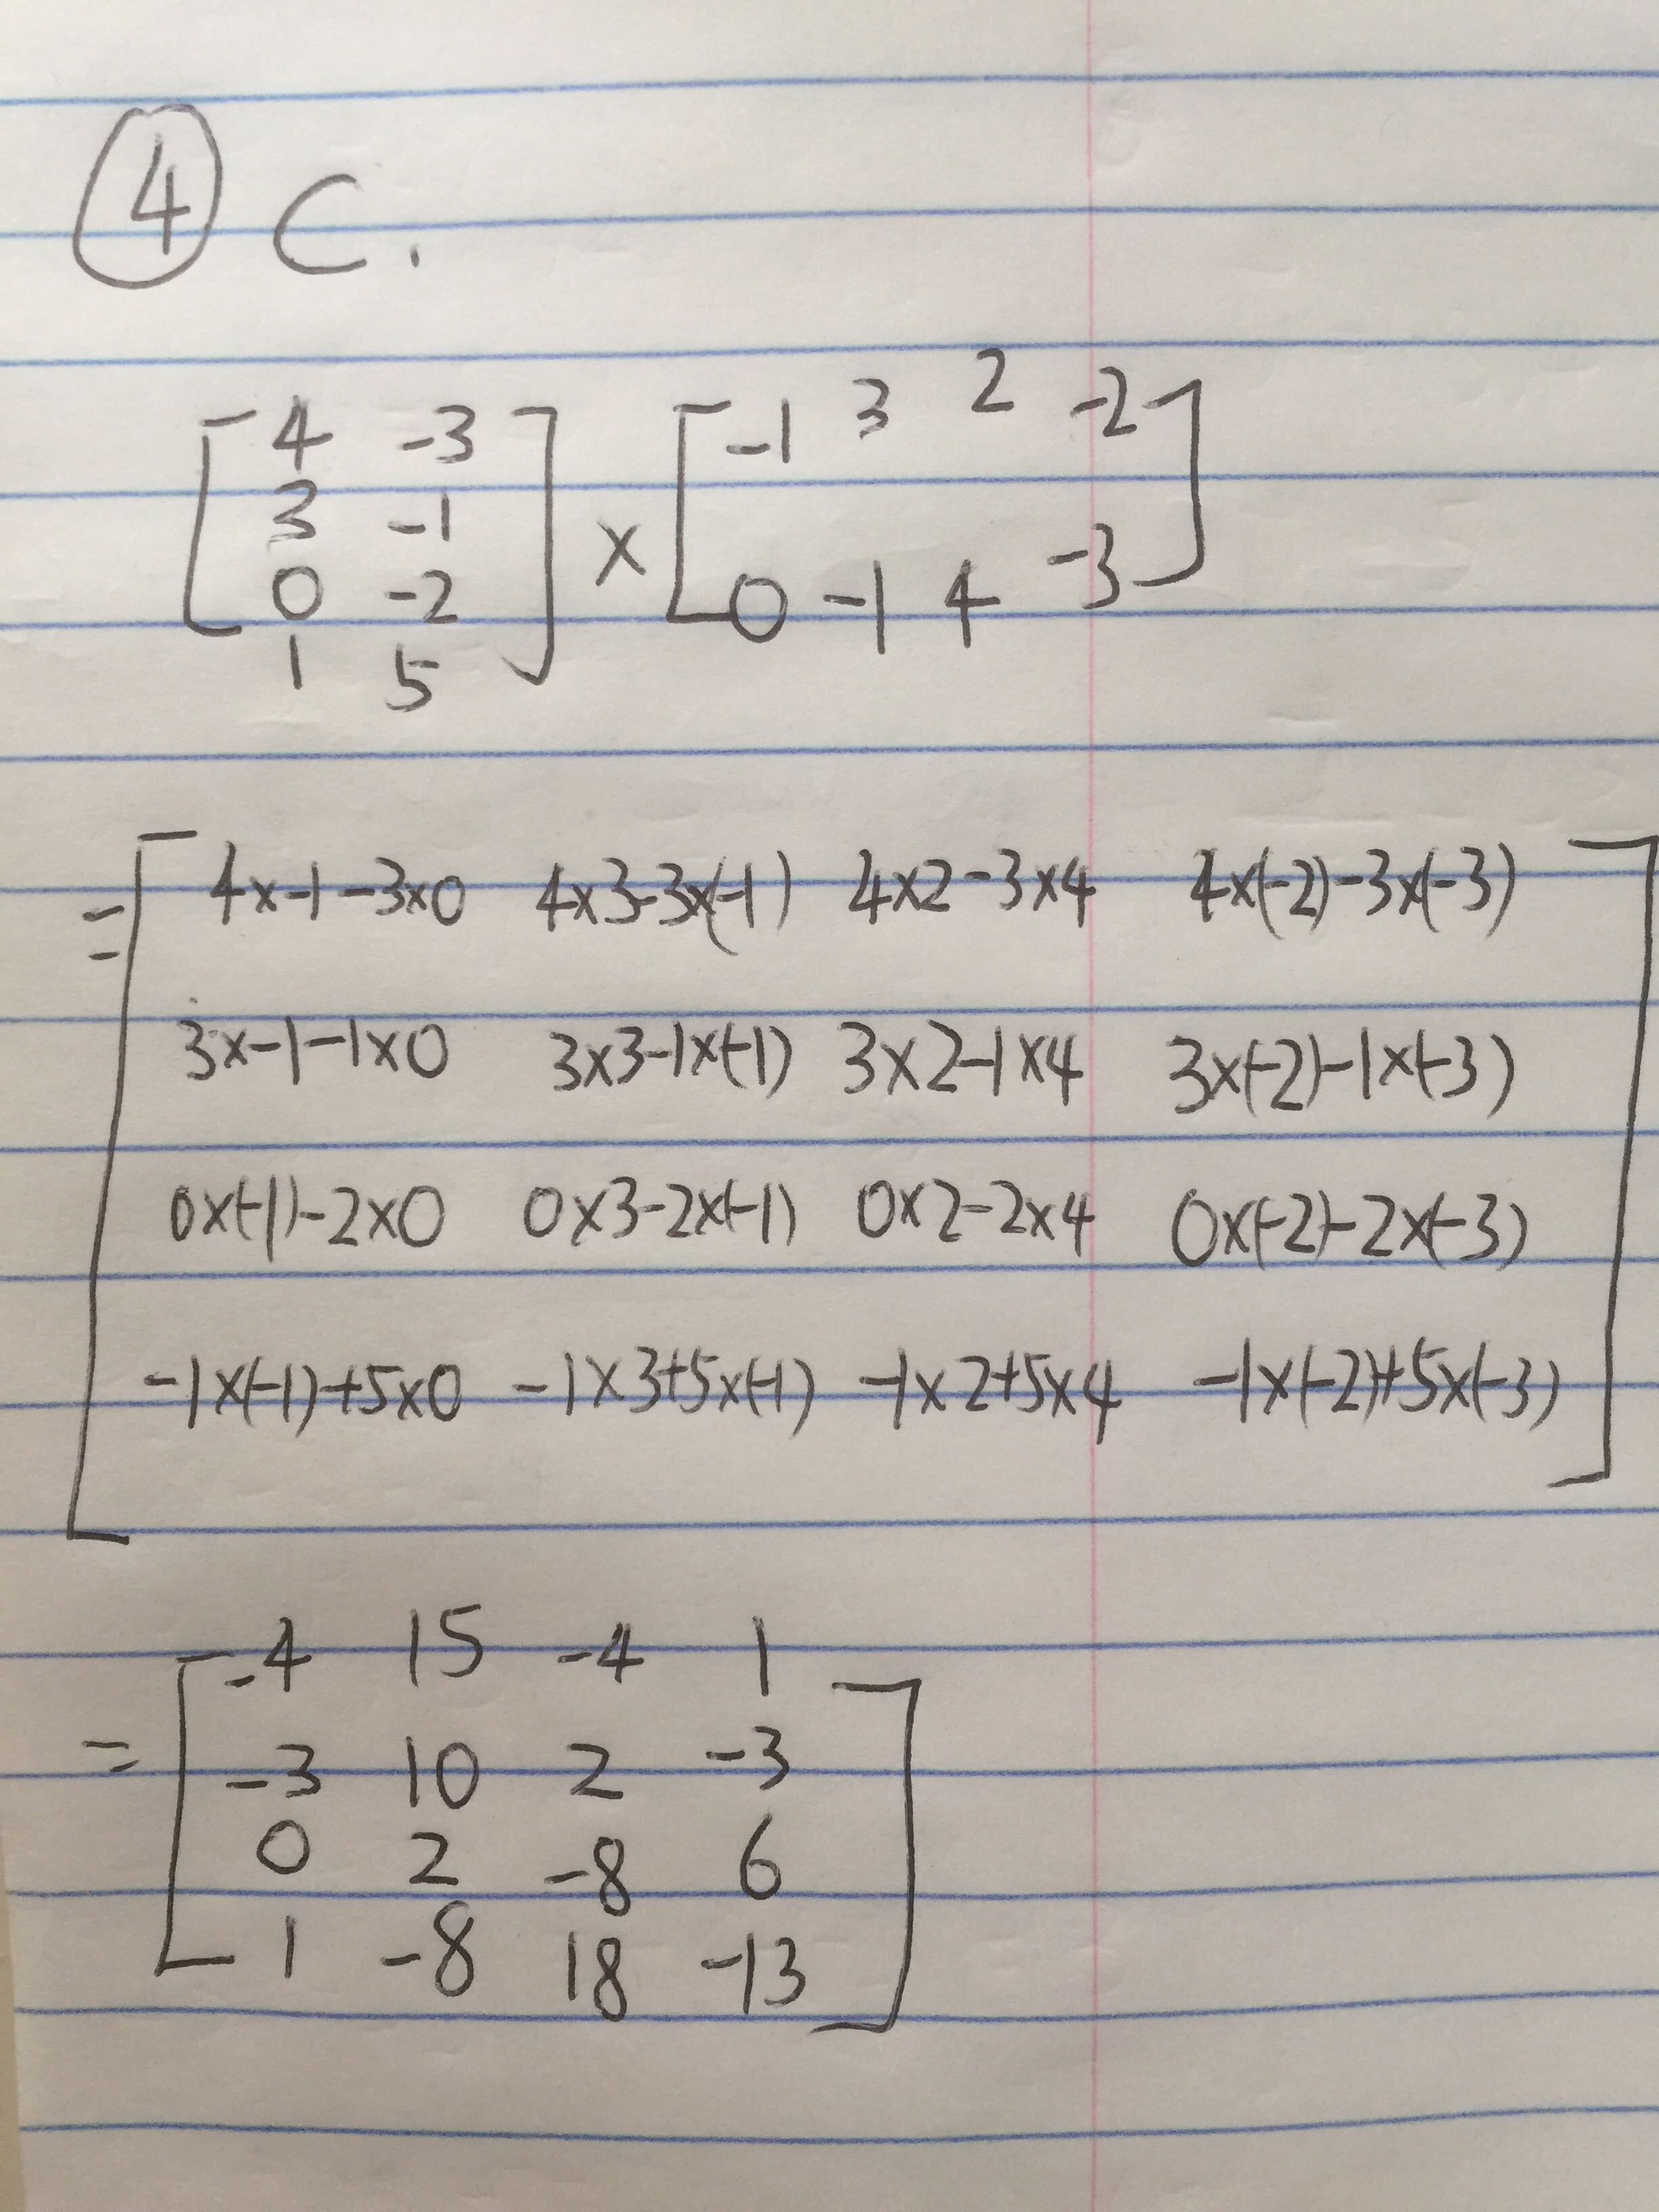 ④ C.
[4 -3] × [-1 3 2 -2]
3 -1
0 -2 0 -1 4 -3
1 5
= [4×-1-3×0 4×3-3×(-1) 4×2-3×4 4×(-2)-3×(-3)
3×-1-1×0 3×3-1×(-1) 3×2-1×4 3×(-2)-1×(-3)
0×(-1)-2×0 0×3-2×(-1) 0×2-2×4 0×(-2)-2×(-3)
-1×(-1)+5×0 -1×3+5×(-1) -1×2+5×4 -1×(-2)+5×(-3)]
= [-4 15 -4 1
-3 10 2 -3
0 2 -8 6
1 -8 18 -13]